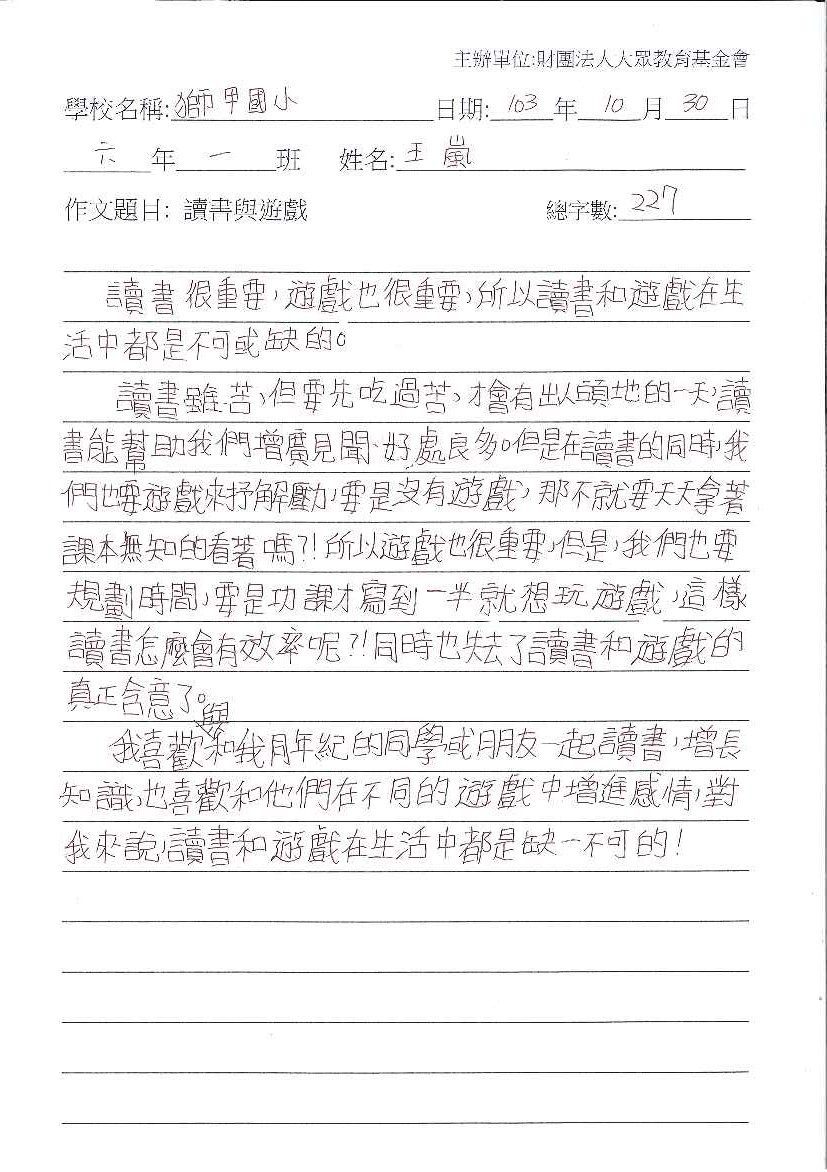 主辦單位:財團法人大眾教育基金會
學校名稱:獅甲國小 日期:103年10月30日
六年一班 姓名:王嵐
作文題目: 讀書與遊戲 總字數:227
讀書很重要,遊戲也很重要,所以讀書和遊戲在生
活中都是不可或缺的。
讀書雖苦,但要先吃過苦,才會有出人頭地的一天,讀
書能幫助我們增廣見聞、好處良多。但是在讀書的同時,我
們也要遊戲來抒解壓力,要是沒有遊戲,那不就要天天拿著
課本無知的看著嗎?!所以遊戲也很重要,但是,我們也要
規劃時間,要是功課才寫到一半就想玩遊戲,這樣
讀書怎麼會有效率呢?!同時也失去了讀書和遊戲的
真正含意了。
與
我喜歡和我同年紀的同學或朋友一起讀書,增長
知識,也喜歡和他們在不同的遊戲中增進感情,對
我來說,讀書和遊戲在生活中都是缺一不可的!